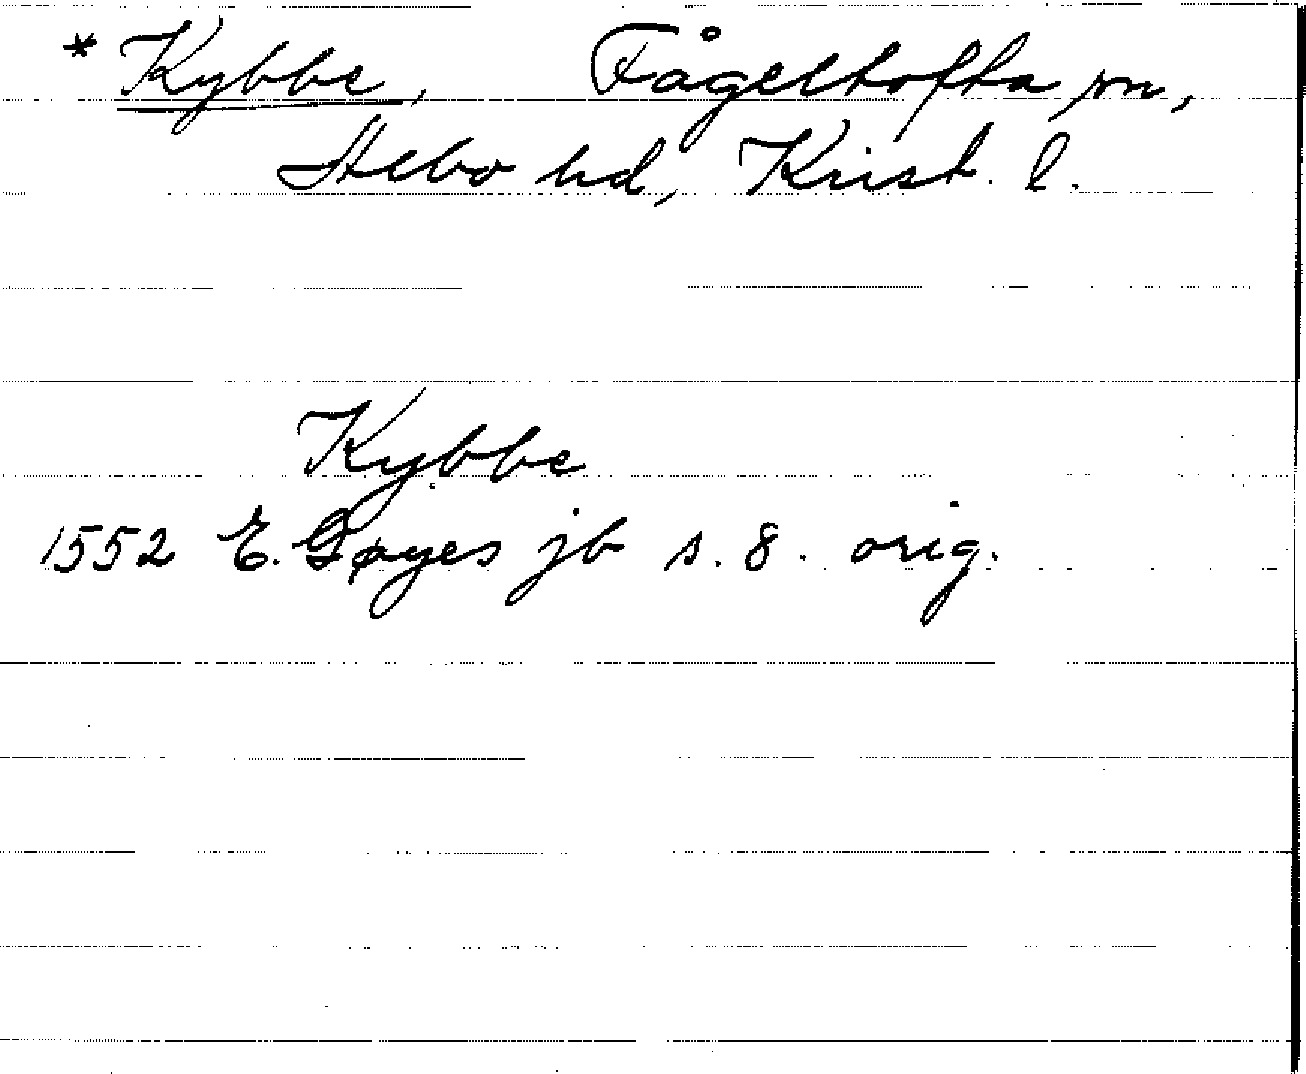 * Kybbe, Fågeltofta sn,
Albo hd, Krist. l.
Kybbe
1552 E. Gøyes jb s. 8. orig.